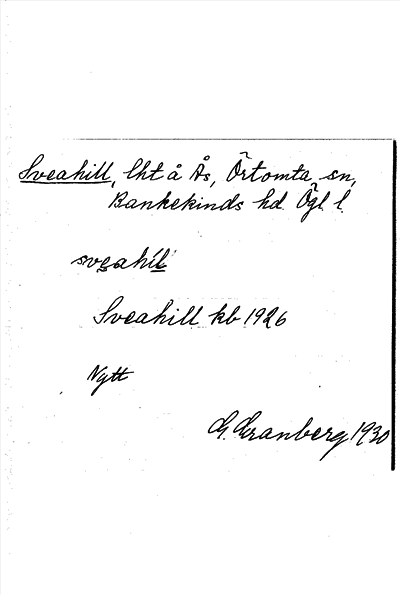 Sveahill, lht å Ås, Örtomta sn,
Bankekinds hd. Ögl. l.
sveahíl
Sveahill kb 1926
Nytt
G. Granberg 1930